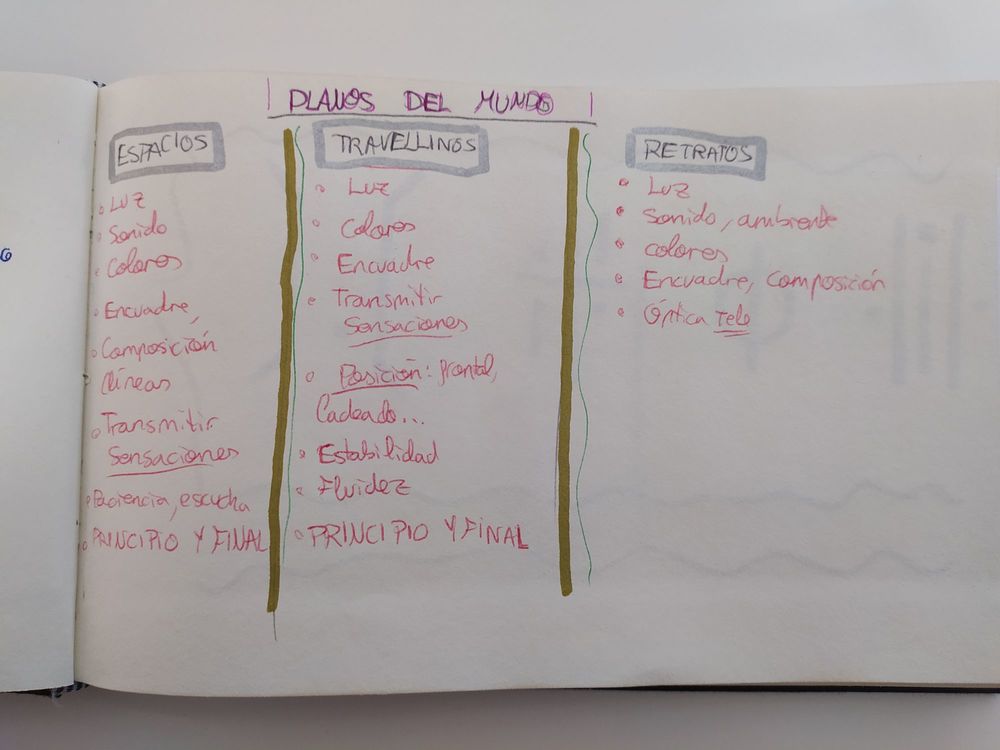 PLANOS DEL MUNDO
ESPACIOS
• Luz
• Sonido
• Colores
• Encuadre,
• Composición
líneas
• Transmitir
Sensaciones
• Paciencia, escucha
• PRINCIPIO Y FINAL
TRAVELLINGS
• Luz
• Colores
• Encuadre
• Transmitir
Sensaciones
• Posición: frontal,
Cadeado...
• Estabilidad
• Fluidez
• PRINCIPIO Y FINAL
RETRATOS
• Luz
• Sonido, ambiente
• colores
• Encuadre, composición
• Óptica Tele